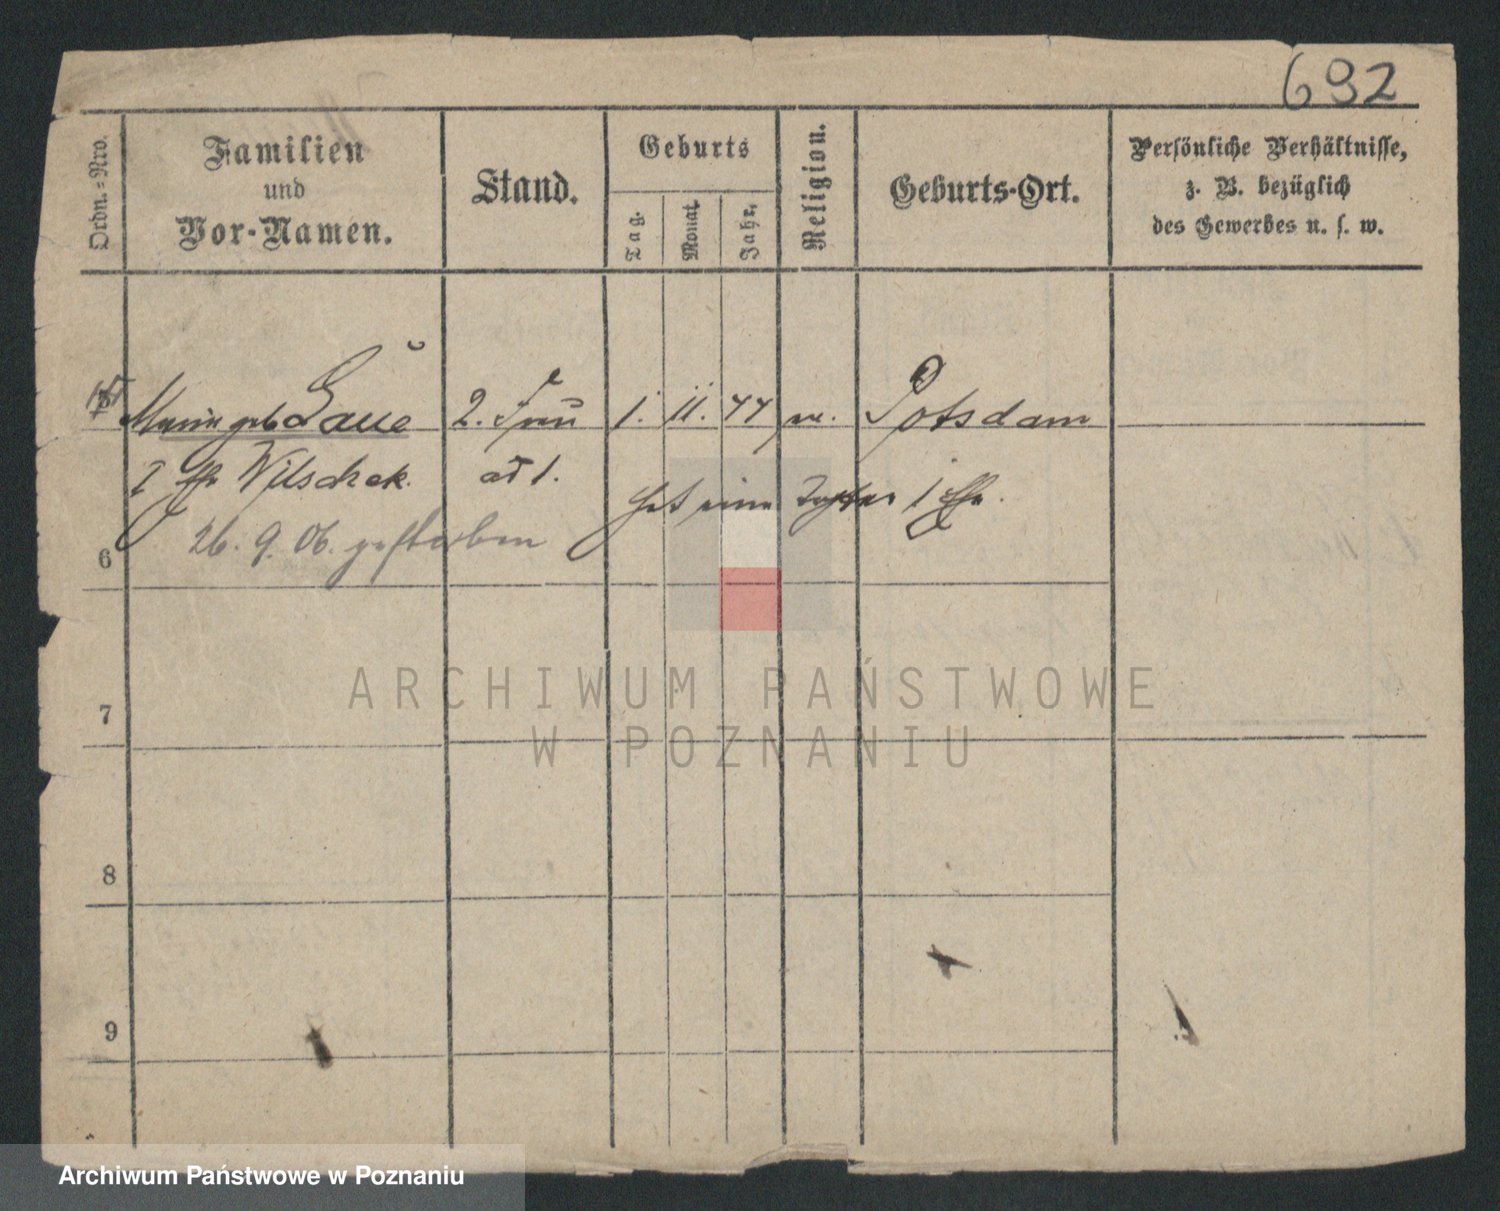 692
Ordn.=Nro.
Familien
und
Vor-Namen.
Stand.
Geburts
Tag.
Monat.
Jahr.
Religion.
Geburts-Ort.
Persönliche Verhältnisse,
z. B. bezüglich
des Gewerbes u. s. w.
Marie geb Laue 2. Frau 1. 11. 44 ev. Potsdam
I Ehe Wilschek. ad 1.
hat eine Tochter I Ehe.
26. 9. 06. gestorben
6
7
8
9
ARCHIWUM PAŃSTWOWE
W POZNANIU
Archiwum Państwowe w Poznaniu